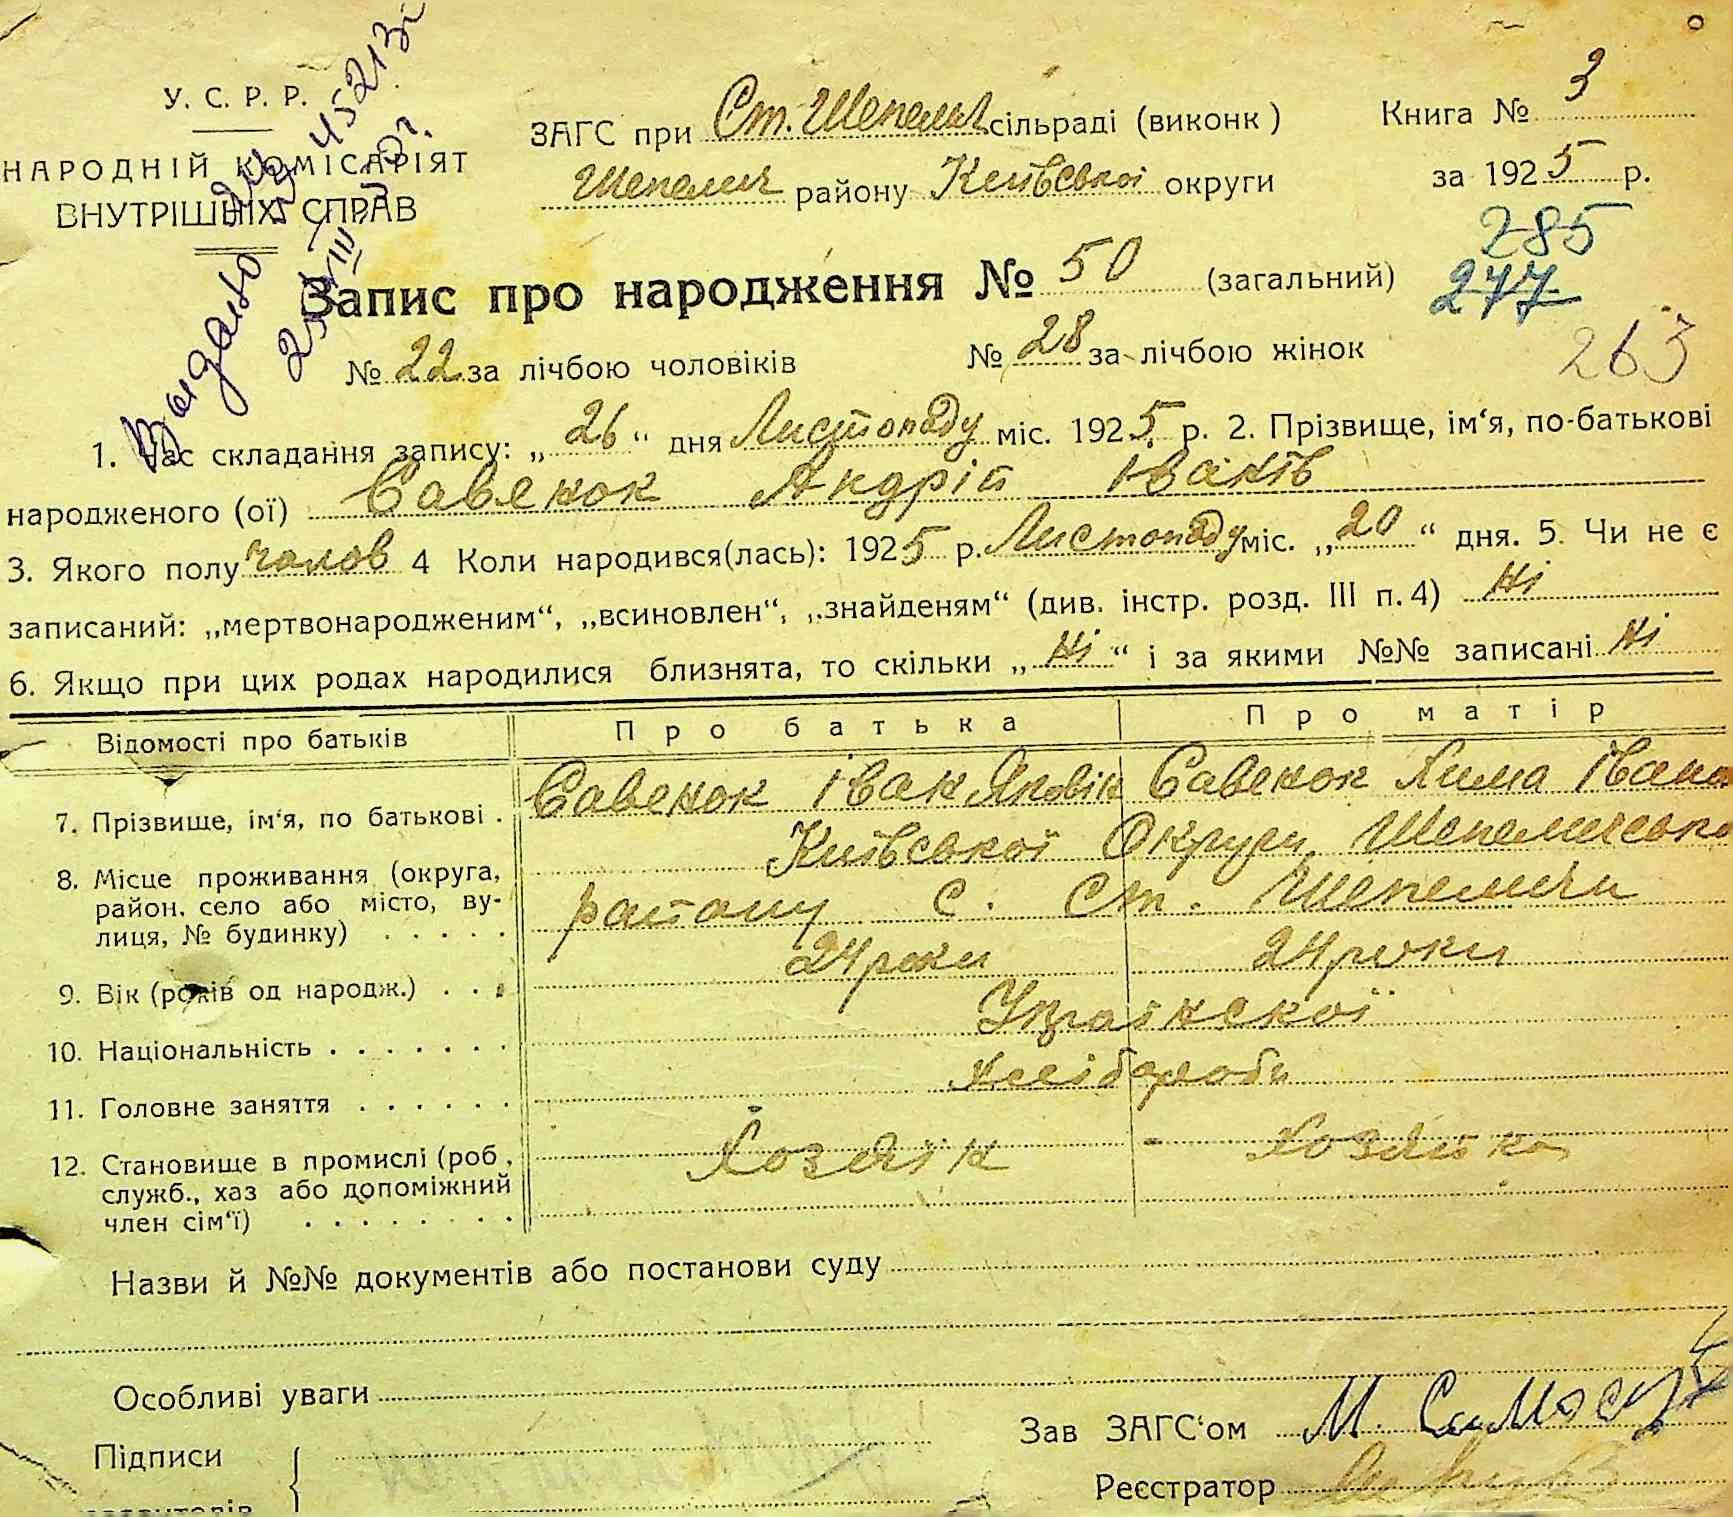 У. С. Р. Р.
НАРОДНІЙ КОМІСАРІЯТ
ВНУТРІШНІХ СПРАВ
Видано
ЗАГС при Ст. Шепелич сільраді (виконк)
Шепелич району Київської округи
Книга № 3
за 1925 р.
285
277
263
Запис про народження № 50 (загальний)
№ 22 за лічбою чоловіків № 28 за лічбою жінок
1. Час складання запису: „26“ дня Листопаду міс. 1925 р. 2. Прізвище, ім‘я, по-батькові
народженого (ої) Савенок Андрій Іванів
3. Якого полу чолов 4 Коли народився(лась): 1925 р. Листопаду міс. „20“ дня. 5. Чи не є
записаний: „мертвонародженим“, „всиновлен“, „знайденям“ (див. інстр. розд. III п. 4) Ні
6. Якщо при цих родах народилися близнята, то скільки „Ні“ і за якими №№ записані Ні
Відомості про батьків Про батька Про матір
7. Прізвище, ім‘я, по батькові . Савенок Іван Яковін Савенок Хима Івано
8. Місце проживання (округа, Київської Округи, Шепеличсько
район, село або місто, ву- району с. Ст. Шепеличи
лиця, № будинку) . . . . .
9. Вік (років од народж.) . . . 24 роки 24 роки
10. Національність . . . . . . . Украінскоі
11. Головне заняття . . . . . . хлібороби
12. Становище в промислі (роб, Хозяін Хозяйка
служб., хаз або допоміжний
член сім‘ї) . . . . . . . .
Назви й №№ документів або постанови суду
Особливі уваги
Підписи
Зав ЗАГС‘ом М.
Реєстратор